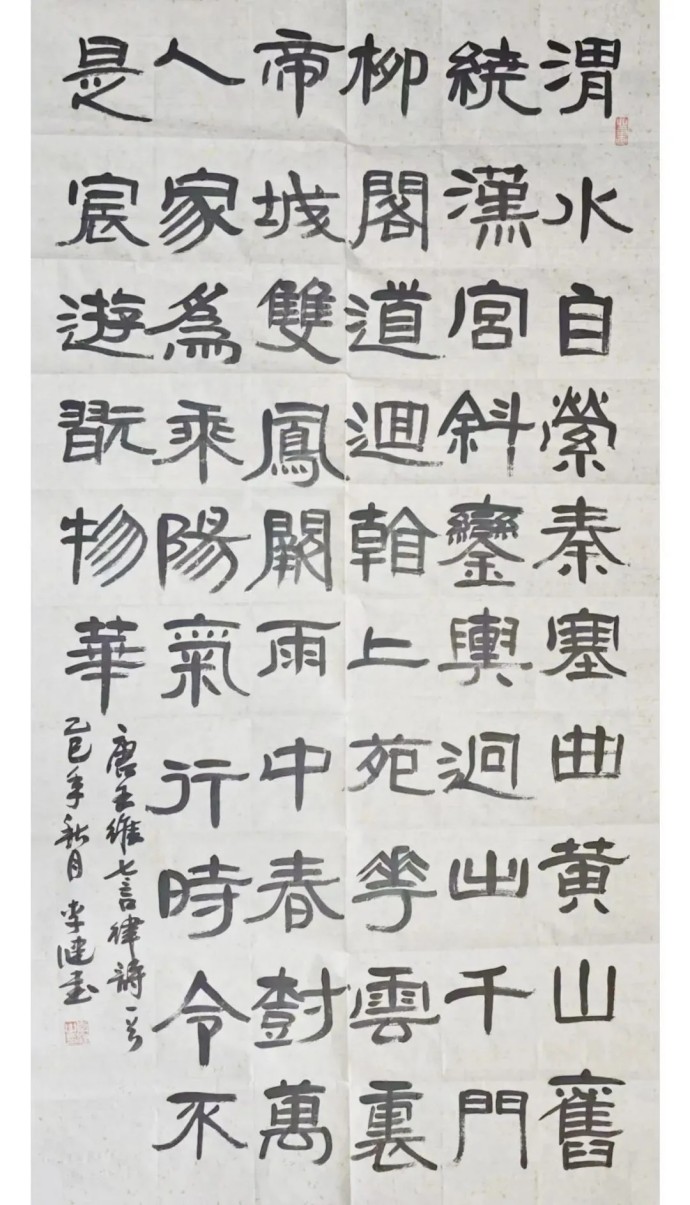 渭水自縈秦塞曲黄山舊
繞漢宮斜鑾輿迥出千門
柳閣道迴看上苑花雲裏
帝城雙鳳闕雨中春樹萬
人家爲乘陽氣行時令不
是宸遊翫物華
唐王維七言律詩一首
乙巳年秋月 李健書